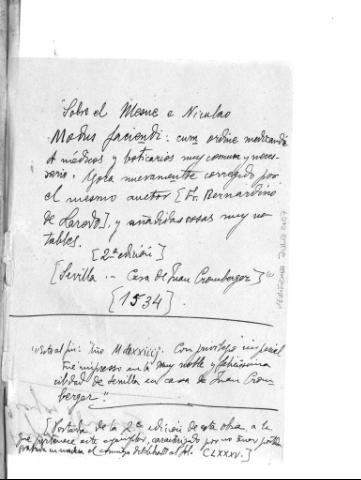 Sobre el Mesue e Nicolao
Modus faciendi: cum ordine medicandi
A médicos y boticarios muy comun y nece-
sario. Agora nuevamente corregido por
el mesmo auctor [Fr. Bernardino
de Laredo], y añadidas cosas muy no-
tables.
[2ª edición]
[Sevilla .- Casa de Juan Cromberger]
[1534].
Año M.dxxvij. Con privilegio imperial
fue impresso en la muy noble y felicissima
cibdad de Sevilla en casa de Juan Crom-
berger"
[Portada de la 2ª edición de esta obra, a la
que pertenece este ejemplar, caracterizado por no tener
el al fol. CLXXXV.]